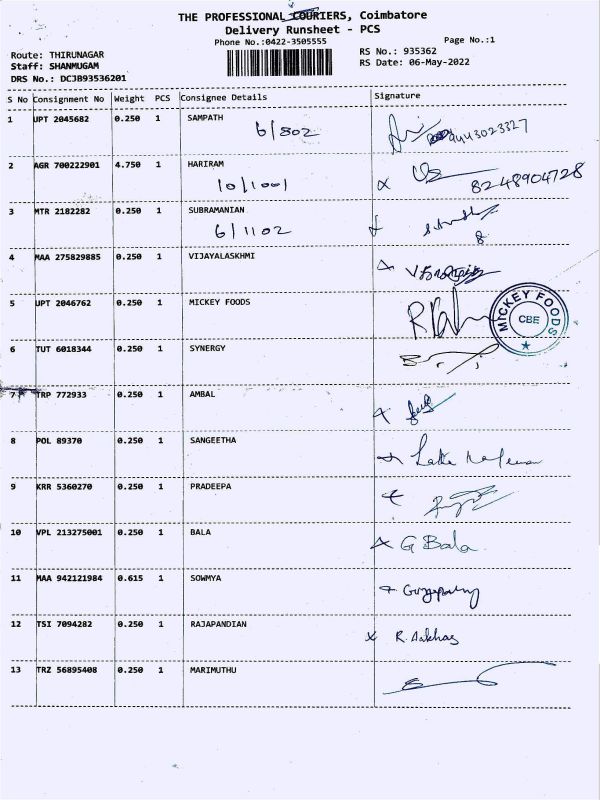 THE PROFESSIONAL COURIERS, Coimbatore
Delivery Runsheet - PCS
Phone No.:0422-3505555
Page No.:1
Route: THIRUNAGAR
RS No.: 935362
Staff: SHANMUGAM
RS Date: 06-May-2022
DRS No.: DCJB93536201
S No Consignment No Weight PCS Consignee Details Signature
1 UPT 2045682 0.250 1 SAMPATH
6/802 9443023327
2 AGR 700222901 4.750 1 HARIRAM
10/1001 8248904728
3 MTR 2182282 0.250 1 SUBRAMANIAN
6/1102
4 MAA 275829885 0.250 1 VIJAYALASKHMI
5 UPT 2046762 0.250 1 MICKEY FOODS
MICKEY FOODS
CBE
6 TUT 6018344 0.250 1 SYNERGY
7 TRP 772933 0.250 1 AMBAL
8 POL 89370 0.250 1 SANGEETHA
9 KRR 5360270 0.250 1 PRADEEPA
10 VPL 213275001 0.250 1 BALA
G Bala
11 MAA 942121984 0.615 1 SOWMYA
12 TSI 7094282 0.250 1 RAJAPANDIAN
13 TRZ 56895408 0.250 1 MARIMUTHU